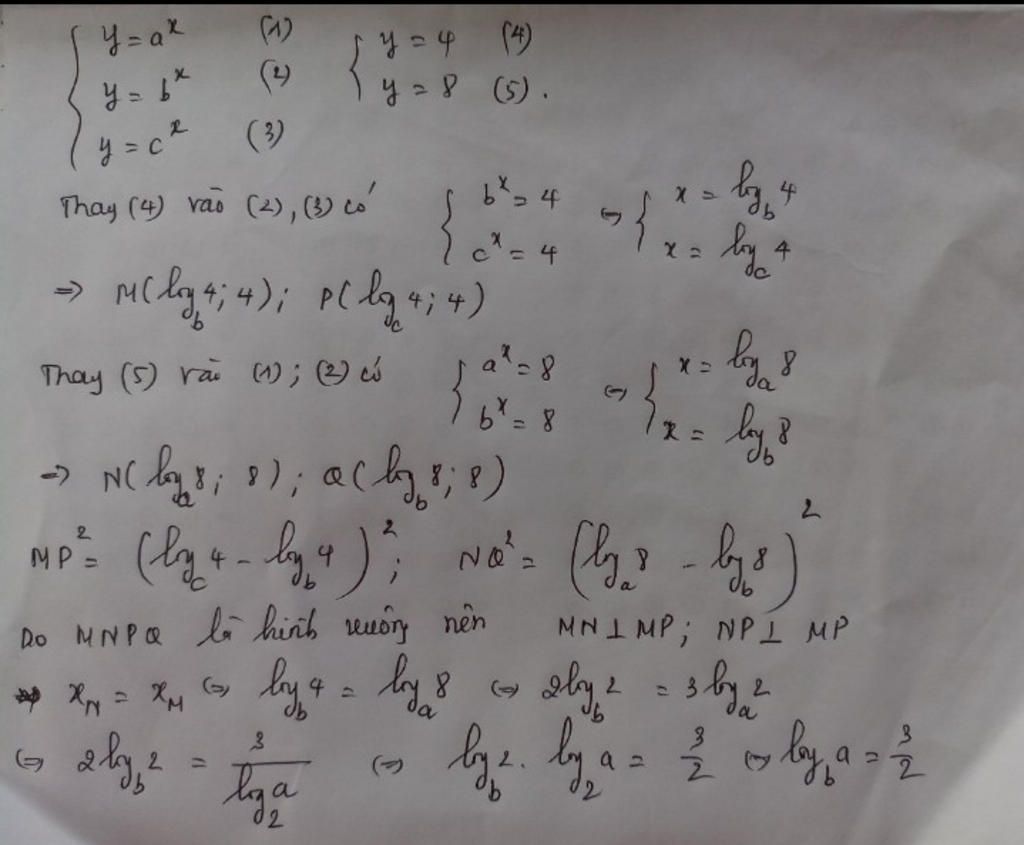 { y = a^x (1) { y = 4 (4)
y = b^x (2) y = 8 (5).
y = c^x (3)
Thay (4) vào (2), (3) có { b^x = 4 ⇔ { x = log_b 4
c^x = 4 x = log_c 4
⇒ M(log_b 4; 4); P(log_c 4; 4)
Thay (5) vào (1); (2) có { a^x = 8 ⇔ { x = log_a 8
b^x = 8 x = log_b 8
⇒ N(log_a 8; 8); Q(log_b 8; 8)
MP^2 = (log_c 4 - log_b 4)^2; NQ^2 = (log_a 8 - log_b 8)^2
Do MNPQ là hình vuông nên MN ⊥ MP; NP ⊥ MP
x_N = x_M ⇔ log_b 4 = log_a 8 ⇔ 2log_b 2 = 3log_a 2
⇔ 2log_b 2 = 3/(log_2 a) ⇔ log_b 2 . log_2 a = 3/2 ⇔ log_b a = 3/2